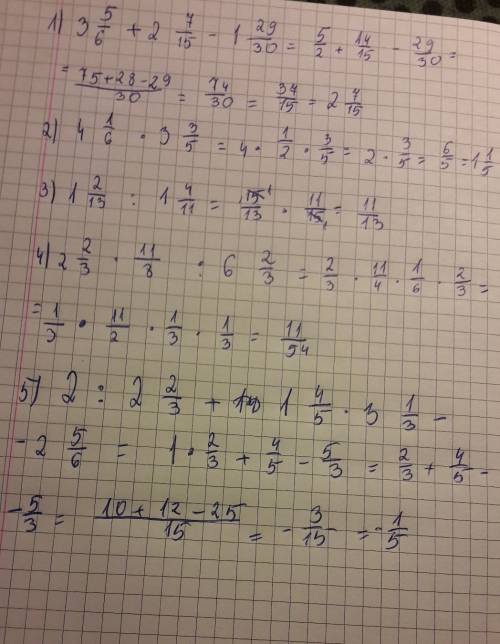 1) 3 5/6 + 2 7/15 - 1 29/30 = 5/2 + 14/15 - 29/30 =
= 75+28-29/30 = 74/30 = 34/15 = 2 7/15
2) 4 1/6 · 3 3/5 = 4 · 1/2 · 3/5 = 2 · 3/5 = 6/5 = 1 1/5
3) 1 2/13 : 1 4/11 = 15/13 · 11/15 = 11/13
4) 2 2/3 · 11/8 : 6 2/3 = 2/3 · 11/4 · 1/6 · 2/3 =
= 1/3 · 11/2 · 1/3 · 1/3 = 11/54
5) 2 : 2 2/3 + 1 4/5 · 3 1/3 -
- 2 5/6 = 1 · 2/3 + 4/5 - 5/3 = 2/3 + 4/5 -
- 5/3 = 10+12-25/15 = - 3/15 = - 1/5